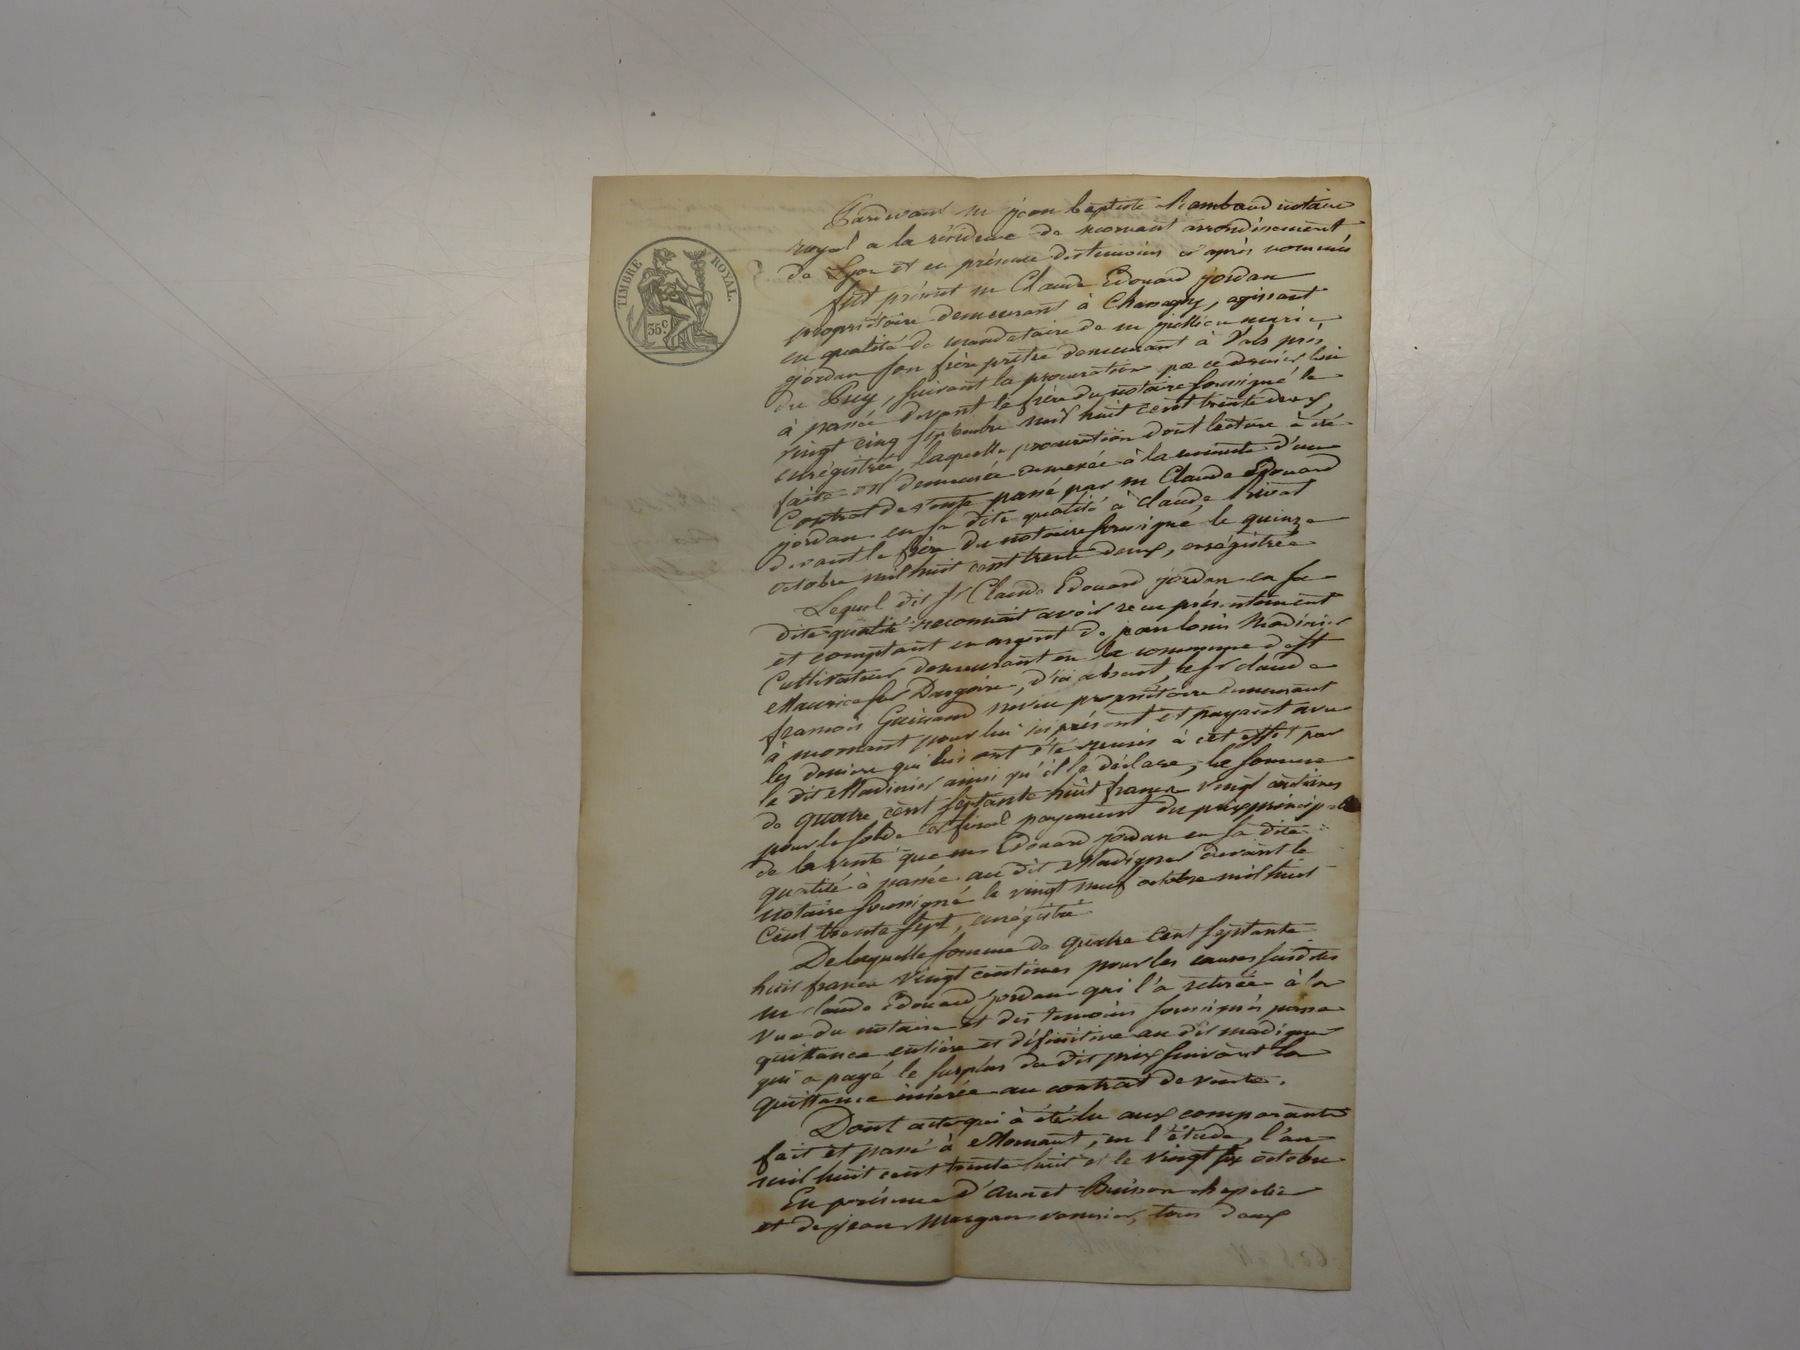 TIMBRE ROYAL.
35c
Pardevant m jean baptiste Rambaud notaire
royal a la résidence de mornant arrondissement
de Lyon et en présence des temoins ci après nommés
fut présent m Claude Edouard jordan
propriétaire demeurant à Chassagny, agissant
en qualité de mandataire de m marie
jordan son frère prêtre demeurant à Vals près
du Puy, suivant la procuration que ce dernier lui
à passée devant le frère du notaire soussigné le
vingt cinq septembre mil huit cent trente deux,
enrégistrée, laquelle procuration dont lecture à été
faite est demeurée annexée à la minute d'un
Contrat de vente passé par m Claude Edouard
jordan en sa dite qualité à Claude Privat
devant le frère du notaire soussigné le quinze
octobre mil huit cent trente deux, enrégistrée
Lequel dit sr Claude Edouard jordan en sa
dite qualité reconnait avoir recu présentement
et comptant en argent de jean louis Madinier
Cultivateur demeurant en la commune de st
Maurice sur Dargoire, d'ici absent, le sr claude
françois Guinand propriétaire demeurant
à mornant pour lui ici présent et payant avec
les deniers qui lui ont été remis à cet effet par
le dit Madinier ainsi qu'il le déclare, la somme
de quatre cent septante huit francs vingt centimes
pour le solde et final payement du prix principal
de la vente que m Edouard jordan en sa dite
qualité à passée au dit Madignier devant le
notaire soussigné le vingt neuf octobre mil huit
cent trente sept, enrégistré
De laquelle somme de quatre cent septante
huit francs vingt centimes pour les causes susdites
m claude Edouard jordan qui l'a retirée à la
vue du notaire et des temoins soussignés passe
quittance entière et définitive au dit madignier
qui a payé le surplus du dit prix suivant la
quittance insérée au contrat de vente.
Dont acte qui à été lu aux comparants
fait et passé à Mornant, en l'étude, l'an
mil huit cent trente huit et le vingt six octobre
En présence d'annet Buisson chapelier
et de jean vannier, tous deux